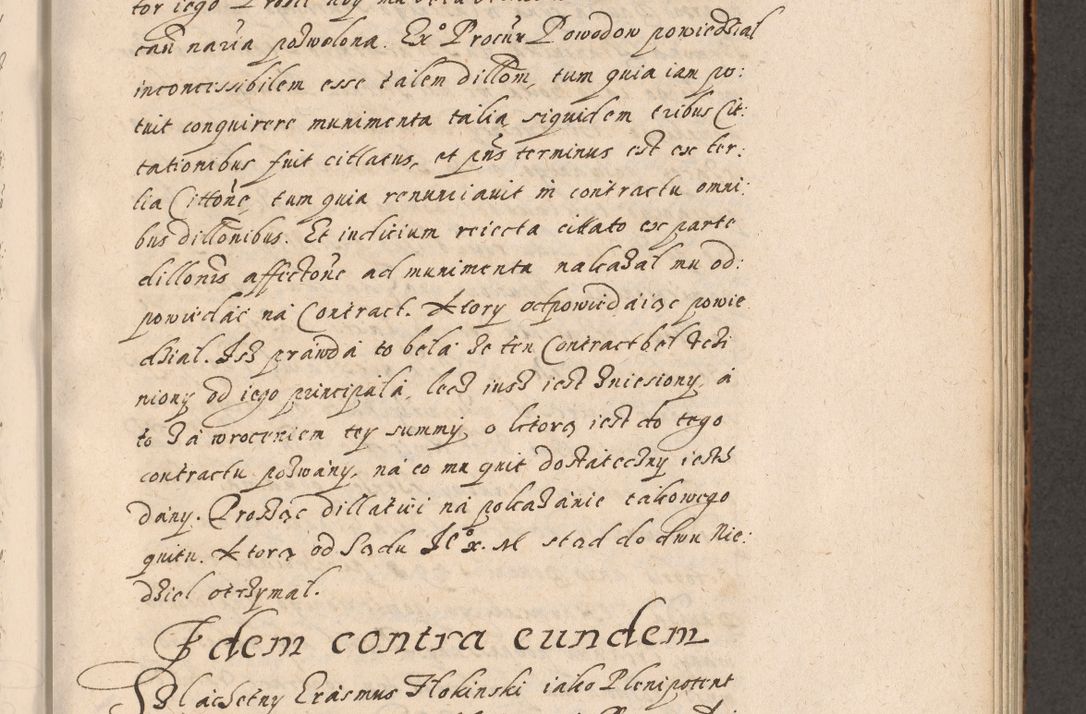 tor iego Prosil
cań naria pozwolona. Ex° Procur Powodow powiedzial
inconcessibilem esse talem dillom, tum quia iam po:
tuit conquirere munimenta talia siquidem tribus Cit:
tationibus fuit citlatus, et pns terminus est ex ter:
tia Cittone, tum quia renuntiavit in contractu omni:
bus dillonibus. Et iudicium reiecta cittato ex parte
dillonis affectone ad munimenta nakazal mu od:
powiedac na Contract. Ktory odpowiedaiąc powie
dzial. Isz prawda to bela ze ten Contract bel vczi
niony od iego principala, lecz iusz iest zniesiony, a
to za wroceniem tey summy, o ktorą iest do tego
contractu pozwany, na co mu quit dostateczny iest
dany. Prosząc dillatiei na pokazanie takowego
quitu. Ktorą od Sądu Je°x. M stad do dwu Nie:
dziel otrzymal.
Idem contra eundem
Slachetny Erasmus Flokinski iako Plenipotent